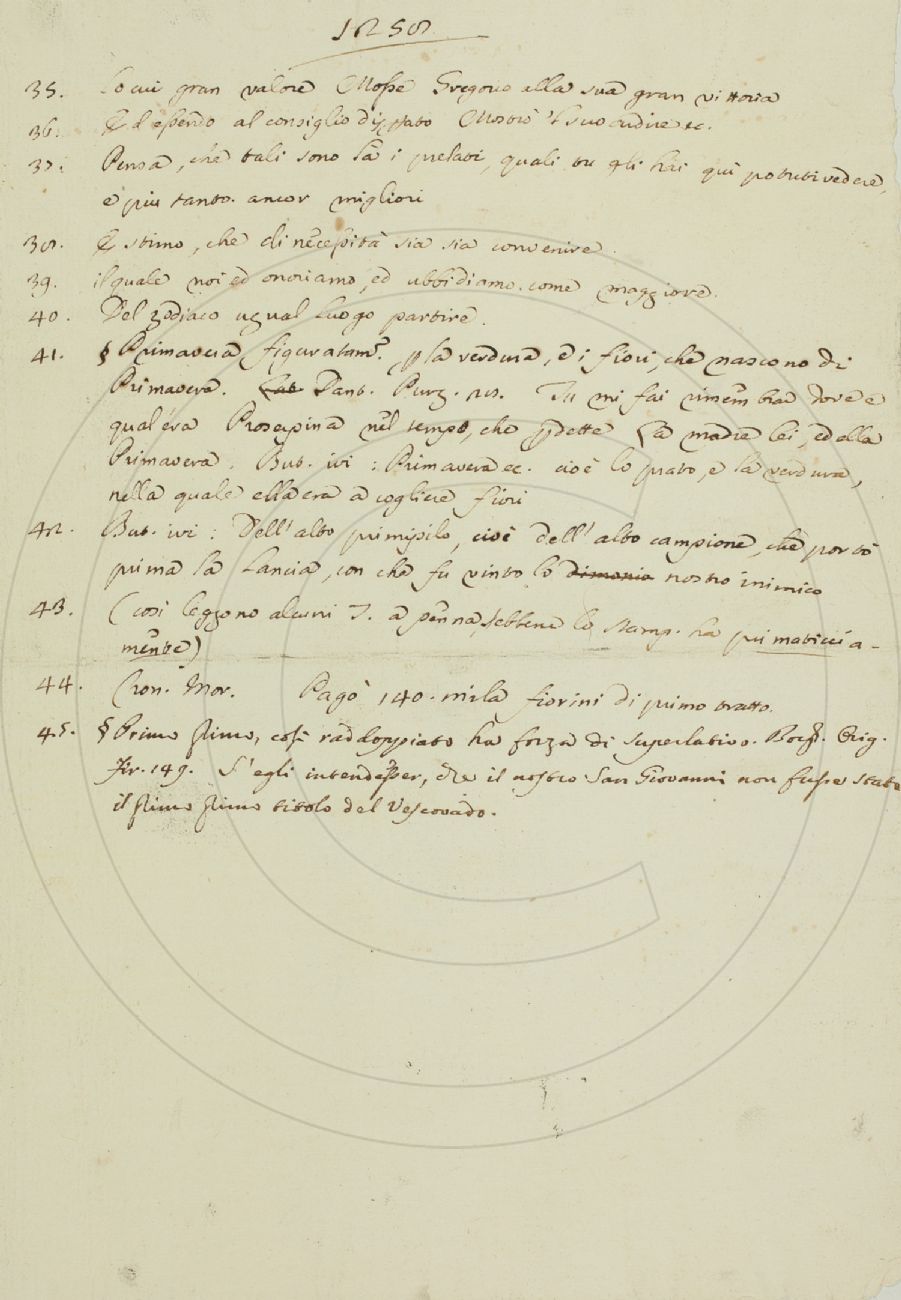 1258
35. Lo cui gran valore Mosse Gregorio alla sua gran vittoria
36. Ed essendo al consiglio disputato Mostrò 'l suo ardire ec.
37. Pensa, che tali sono là i prelati, quali tu gli hai qui potuti vedere,
e più tanto ancor migliori
38. E stimo, che di necessità sia sia convenire.
39. il quale noi ed onoriamo, ed ubbidiamo come maggiore.
40. Del zodiaco ugual luogo partire.
41. § Primavera figuratam.e p la verdura, e i fiori, che nascono di
Primavera. Dant. Purg. 28. Tu mi fai rimembrar dove e
qual'era Proserpina nel tempo, che pdette La madre lei, ed ella
Primavera. But. ivi: Primavera ec. cioè lo prato, e la verdura,
nella quale ella era a cogliere fiori
42. But. ivi: Dell'alto primipilo, cioè dell'alto campione, che portò
prima la Lancia, con che fu vinto lo dimonio nostro inimico
43. (così leggono alcuni T. a penna, sebbene lo stamp. ha primaticcia-
mente)
44. Cron. Mor. Pagò 140. mila fiorini di primo tratto.
45. § Primo primo, così raddoppiato ha forza di superlativo. Borgh. Orig.
Fir. 149. S'egli intendesser, che il nostro San Giovanni non fusse stato
il primo primo titolo del Vescovado.